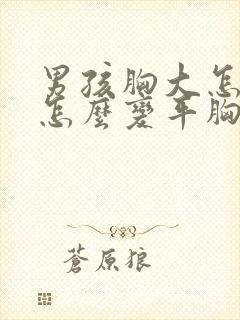 男孩胸大怎
怎麼變平胸
蒼原狼